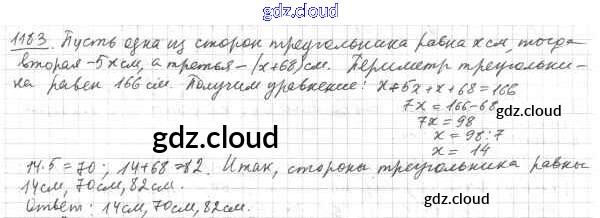 gdz.cloud
1183. Пусть одна из сторон треугольника равна x см, тогда
вторая - 5x см, а третья - (x+68) см. Периметр треугольни-
ка равен 166 см. Получим уравнение: x+5x+x+68=166
7x = 166-68
gdz.cloud
7x = 98
x = 98:7
gdz.cloud
x = 14
14·5=70; 14+68=82. Итак, стороны треугольника равны
14см, 70см, 82см.
Ответ: 14см, 70см, 82см.
gdz.cloud
gdz.cloud